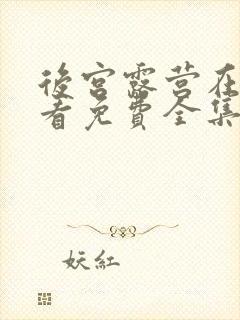 後宫露营在
看免費全集
妖紅